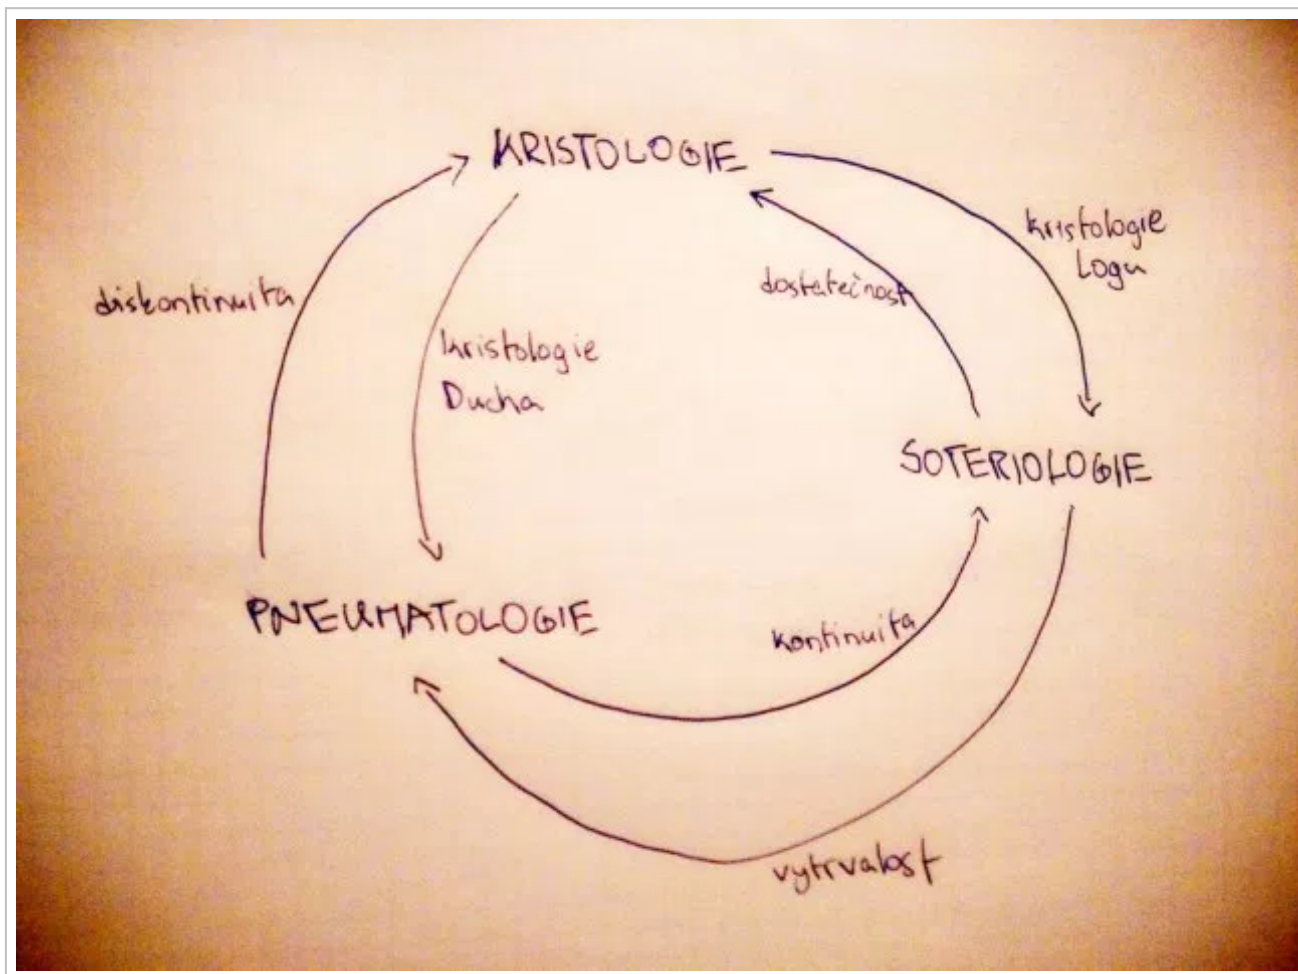 KRISTOLOGIE
kristologie
Logu
dostatečnost
diskontinuita
kristologie
Ducha
SOTERIOLOGIE
PNEUMATOLOGIE
kontinuita
vytrvalost